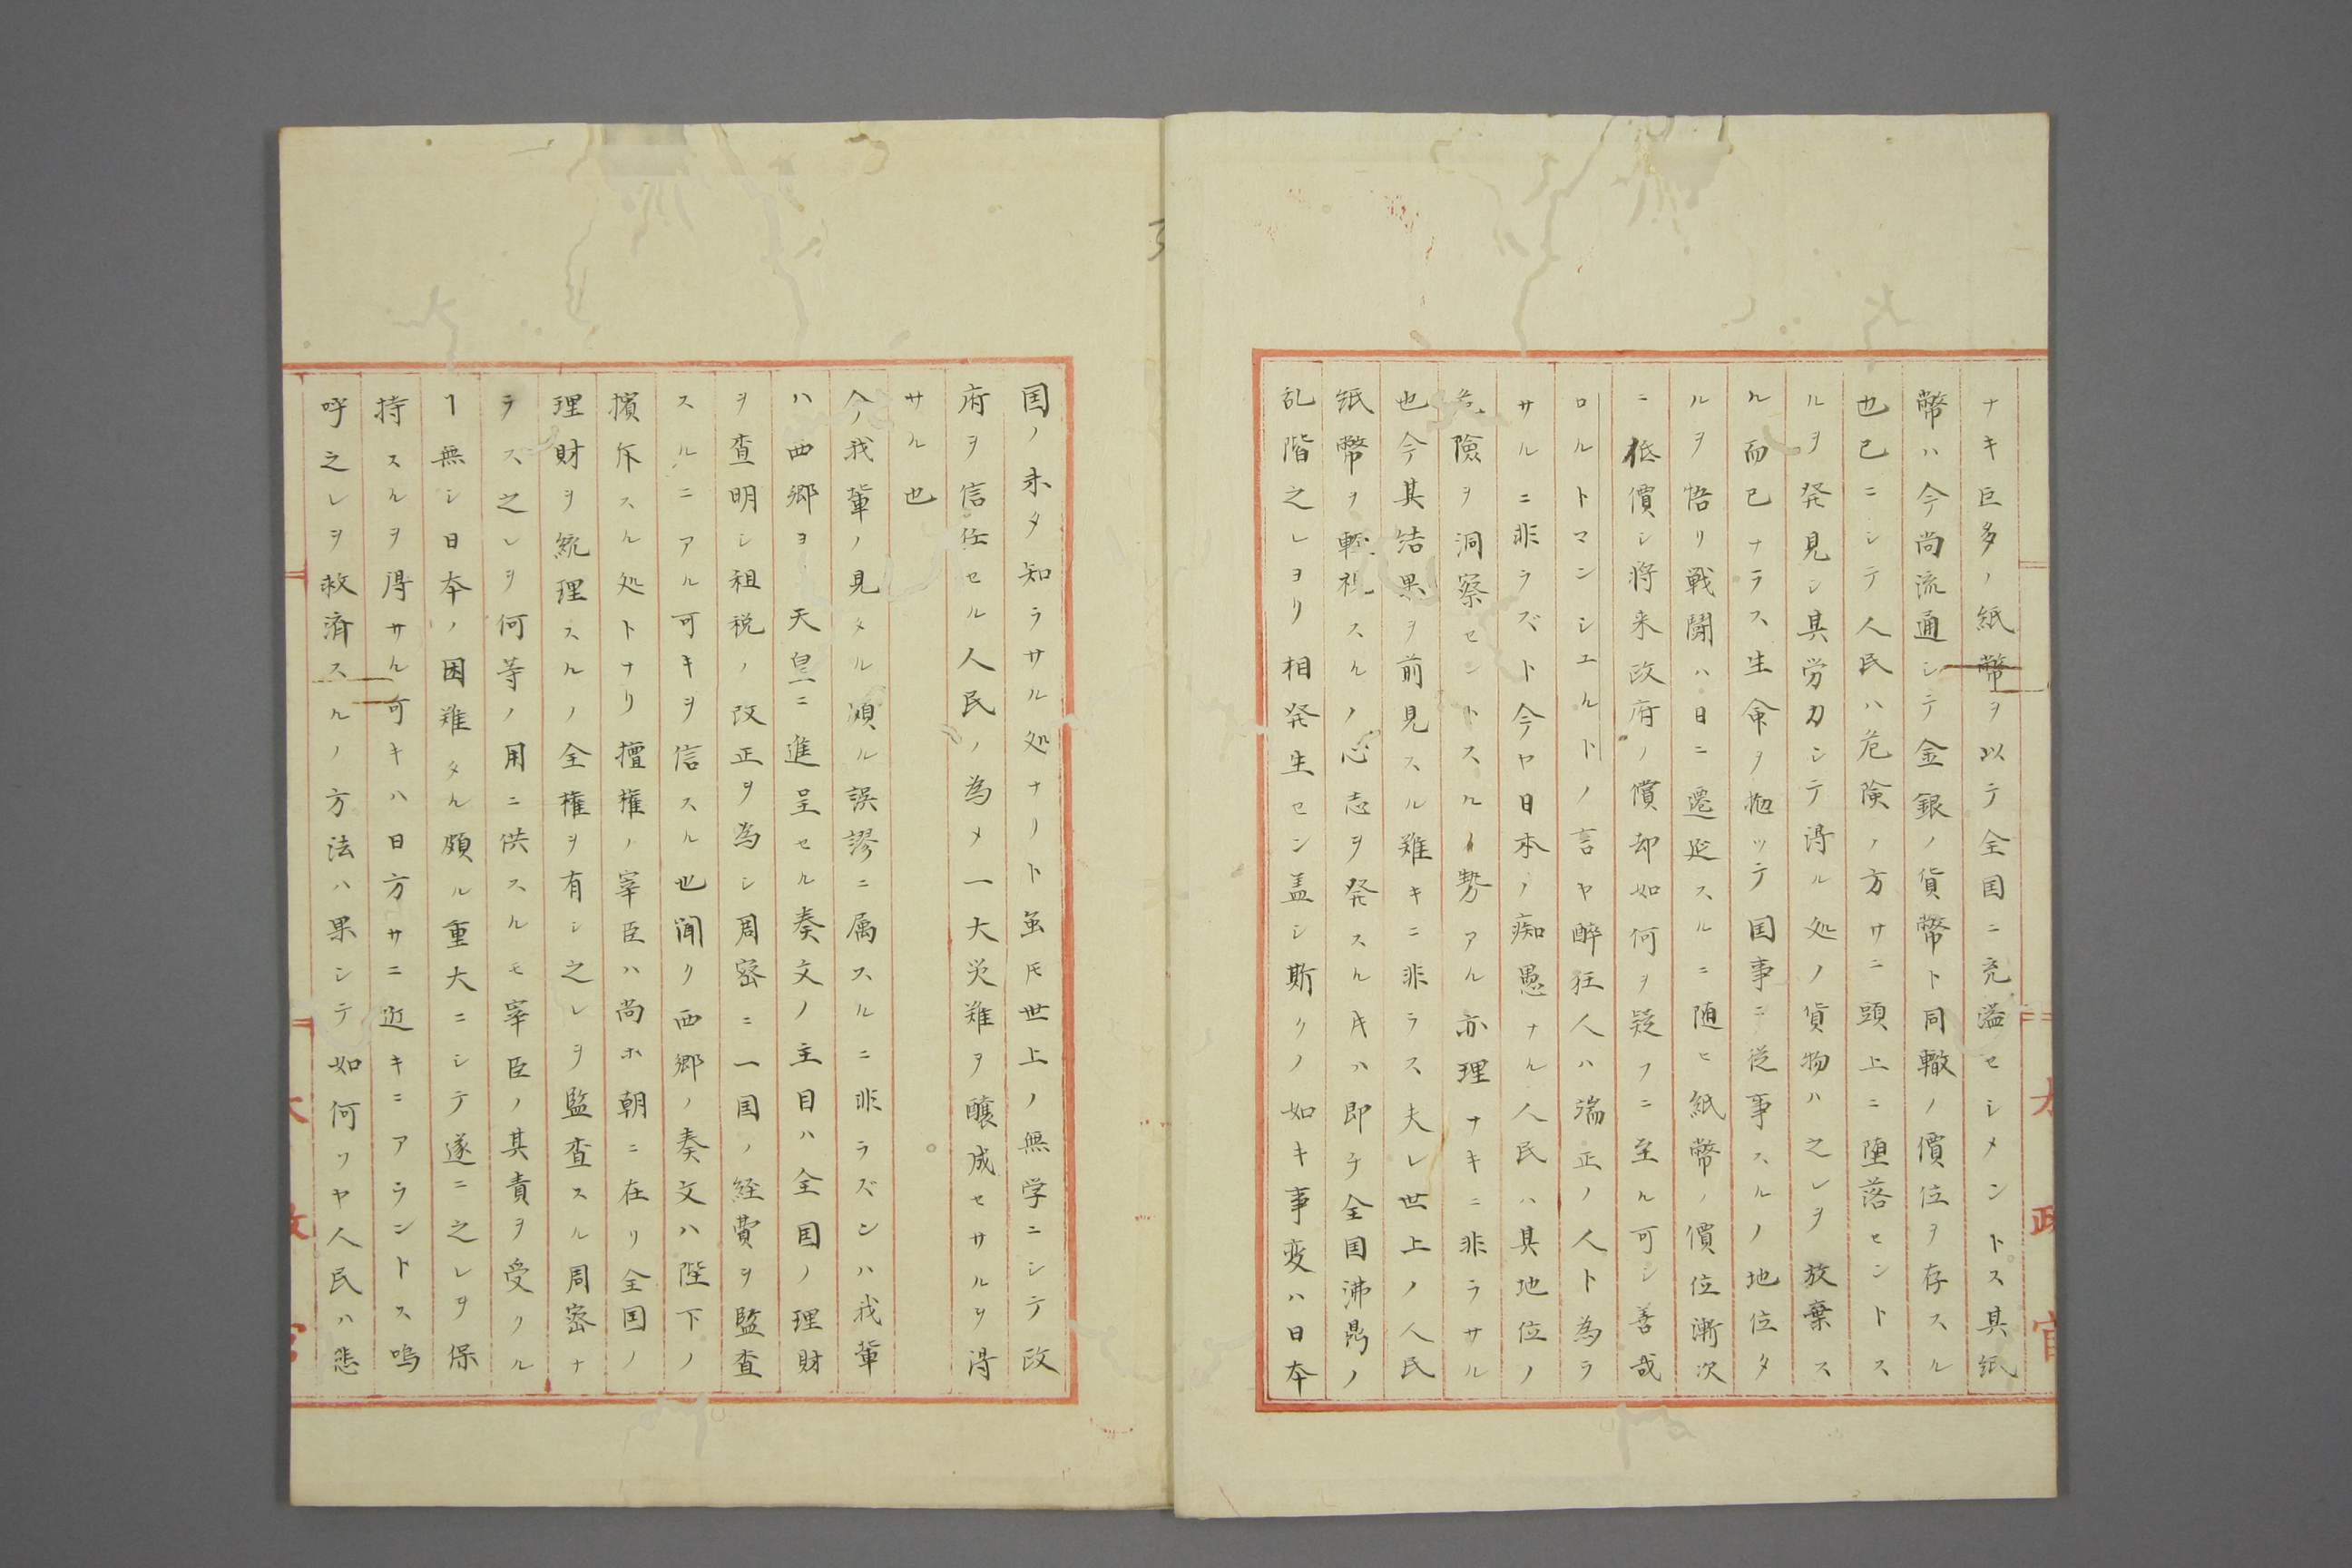 ナキ巨多ノ紙幣ヲ以テ全国ニ充溢セシメントス其紙
幣ハ今尚流通シテ金銀ノ貨幣ト同轍ノ價位ヲ存スル
也已ニシテ人民ハ危険ノ方サニ頭上ニ堕落セントス
ルヲ発見シ其労力シテ得ル処ノ貨物ハ之レヲ放棄ス
ル而已ナラス生命ヲ抛ッテ国事ニ従事スルノ地位タ
ルヲ悟リ戦鬪ハ日ニ遷延スルニ随ヒ紙幣ノ價位漸次
ニ低價シ将来政府ノ償却如何ヲ疑フニ至ル可シ善哉
ロルトマンシエルトノ言ヤ酔狂人ハ端正ノ人ト為ラ
サルニ非ラズト今ヤ日本ノ痴愚ナル人民ハ其地位ノ
危險ヲ洞察セントスルノ勢アル亦理ナキニ非ラサル
也今其結果ヲ前見スル難キニ非ラス夫レ世上ノ人民
紙幣ヲ軽視スルノ心志ヲ発スル片ハ即チ全国沸騰ノ
乱階之レヨリ相発生セン盖シ斯クノ如キ事変ハ日本
国ノ未タ知ラサル処ナリト虽モ世上ノ無学ニシテ政
府ヲ信任セル人民ノ為メ一大災難ヲ醸成セサルヲ得
サル也
今我輩ノ見タル頗ル誤謬ニ属スルニ非ラズンハ我輩
ハ西郷ヨ 天皇ニ進呈セル奏文ノ主目ハ全国ノ理財
ヲ査明シ租税ノ改正ヲ為シ周密ニ一国ノ経費ヲ監査
スルニアル可キヲ信スル也聞ク西郷ノ奏文ハ陛下ノ
擯斥スル処トナリ擅権ノ宰臣ハ尚ホ朝ニ在リ全国ノ
理財ヲ統理スルノ全権ヲ有シ之レヲ監査スル周密ナ
ラス之レヲ何等ノ用ニ供スルモ宰臣ノ其責ヲ受クル
ヿ無シ日本ノ困難タル頗ル重大ニシテ遂ニ之レヲ保
持スルヲ得サル可キハ日方サニ近キニアラントス嗚
呼之レヲ救済スルノ方法ハ果シテ如何ソヤ人民ハ悲
太政官